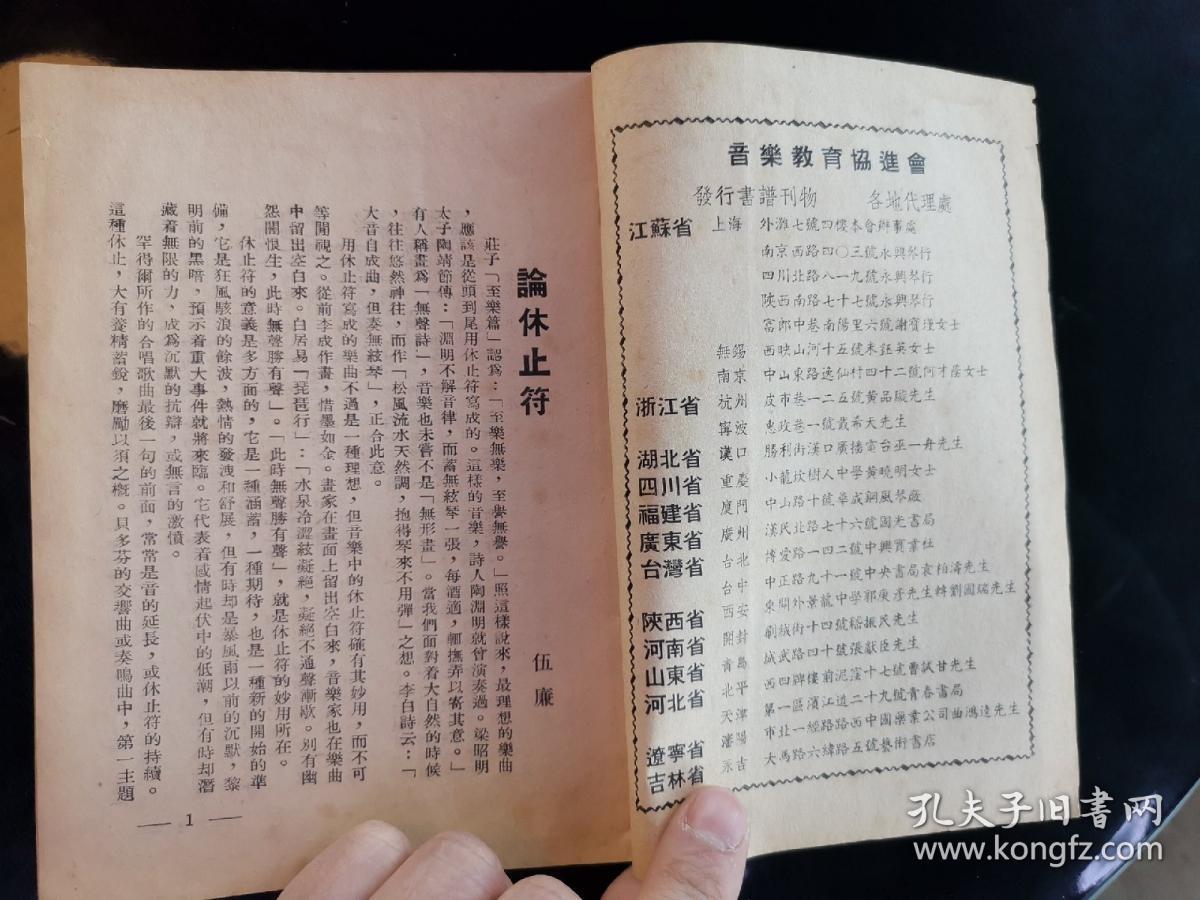 音樂教育協進會
發行書譜刊物 各地代理處
江蘇省 上海 外灘七號四樓本會辦事處
南京西路四〇三號永興琴行
四川北路八一九號永興琴行
陝西南路七十七號永興琴行
富郎中巷南陽里六號謝寶瑾女士
無錫 西映山河十五號朱鈺英女士
南京 中山東路逸仙村四十二號何才蔭女士
浙江省 杭州 皮市巷一二五號黃品璇先生
寧波 惠政巷一號戴希天先生
湖北省 漢口 勝利街漢口廣播電台巫一舟先生
四川省 重慶 小龍坎樹人中學黃曉明女士
福建省 廈門 中山路十號卓成鋼風琴廠
廣東省 廣州 漢民北路七十六號國光書局
台灣省 台北 博愛路一四二號中興實業社
台中 中正路九十一號中央書局袁柏濤先生
陝西省 西安 東關外景龍中學郭庚彥先生轉劉國瑞先生
河南省 開封 刷絨街十四號嵇振民先生
山東省 青島 城武路四十號張獻臣先生
河北省 北平 西四牌樓前泥窪十七號曹試甘先生
天津 第一區濱江道二十九號青春書局
遼寧省 瀋陽 市北一經路路西中國藥業公司曲鴻逵先生
吉林省 永吉 大馬路六緯路五號藝術書店
論休止符
伍廉
莊子「至樂篇」認爲：「至樂無樂，至譽無譽。」照這樣說來，最理想的樂曲
，應該是從頭到尾用休止符寫成的。這樣的音樂，詩人陶淵明就曾演奏過。梁昭明
太子陶靖節傳：「淵明不解音律，而蓄無絃琴一張，每酒適，輒撫弄以寄其意。」
有人稱畫爲「無聲詩」，音樂也未嘗不是「無形畫」。當我們面對着大自然的時候
，往往悠然神往，而作「松風流水天然調，抱得琴來不用彈」之想。李白詩云：「
大音自成曲，但奏無絃琴」，正合此意。
用休止符寫成的樂曲不過是一種理想，但音樂中的休止符確有其妙用，而不可
等閒視之。從前李成作畫，惜墨如金。畫家在畫面上留出空白來，音樂家也在樂曲
中留出空白來。白居易「琵琶行」：「水泉冷澀絃凝絕，凝絕不通聲漸歇。別有幽
怨闇恨生，此時無聲勝有聲」。「此時無聲勝有聲」，就是休止符的妙用所在。
休止符的意義是多方面的，它是一種涵蓄，一種期待，也是一種新的開始的準
備，它是狂風駭浪的餘波，熱情的發洩和舒展，但有時却是暴風雨以前的沉默，黎
明前的黑暗，預示着重大事件就將來臨。它代表着感情起伏中的低潮，但有時却潛
藏着無限的力，成爲沉默的抗辯，或無言的激憤。
罕得爾所作的合唱歌曲最後一句的前面，常常是音的延長，或休止符的持續。
這種休止，大有養精蓄銳，磨勵以須之概。貝多芬的交響曲或奏鳴曲中，第一主題
— 1 —
孔夫子旧书网
www.kongfz.com